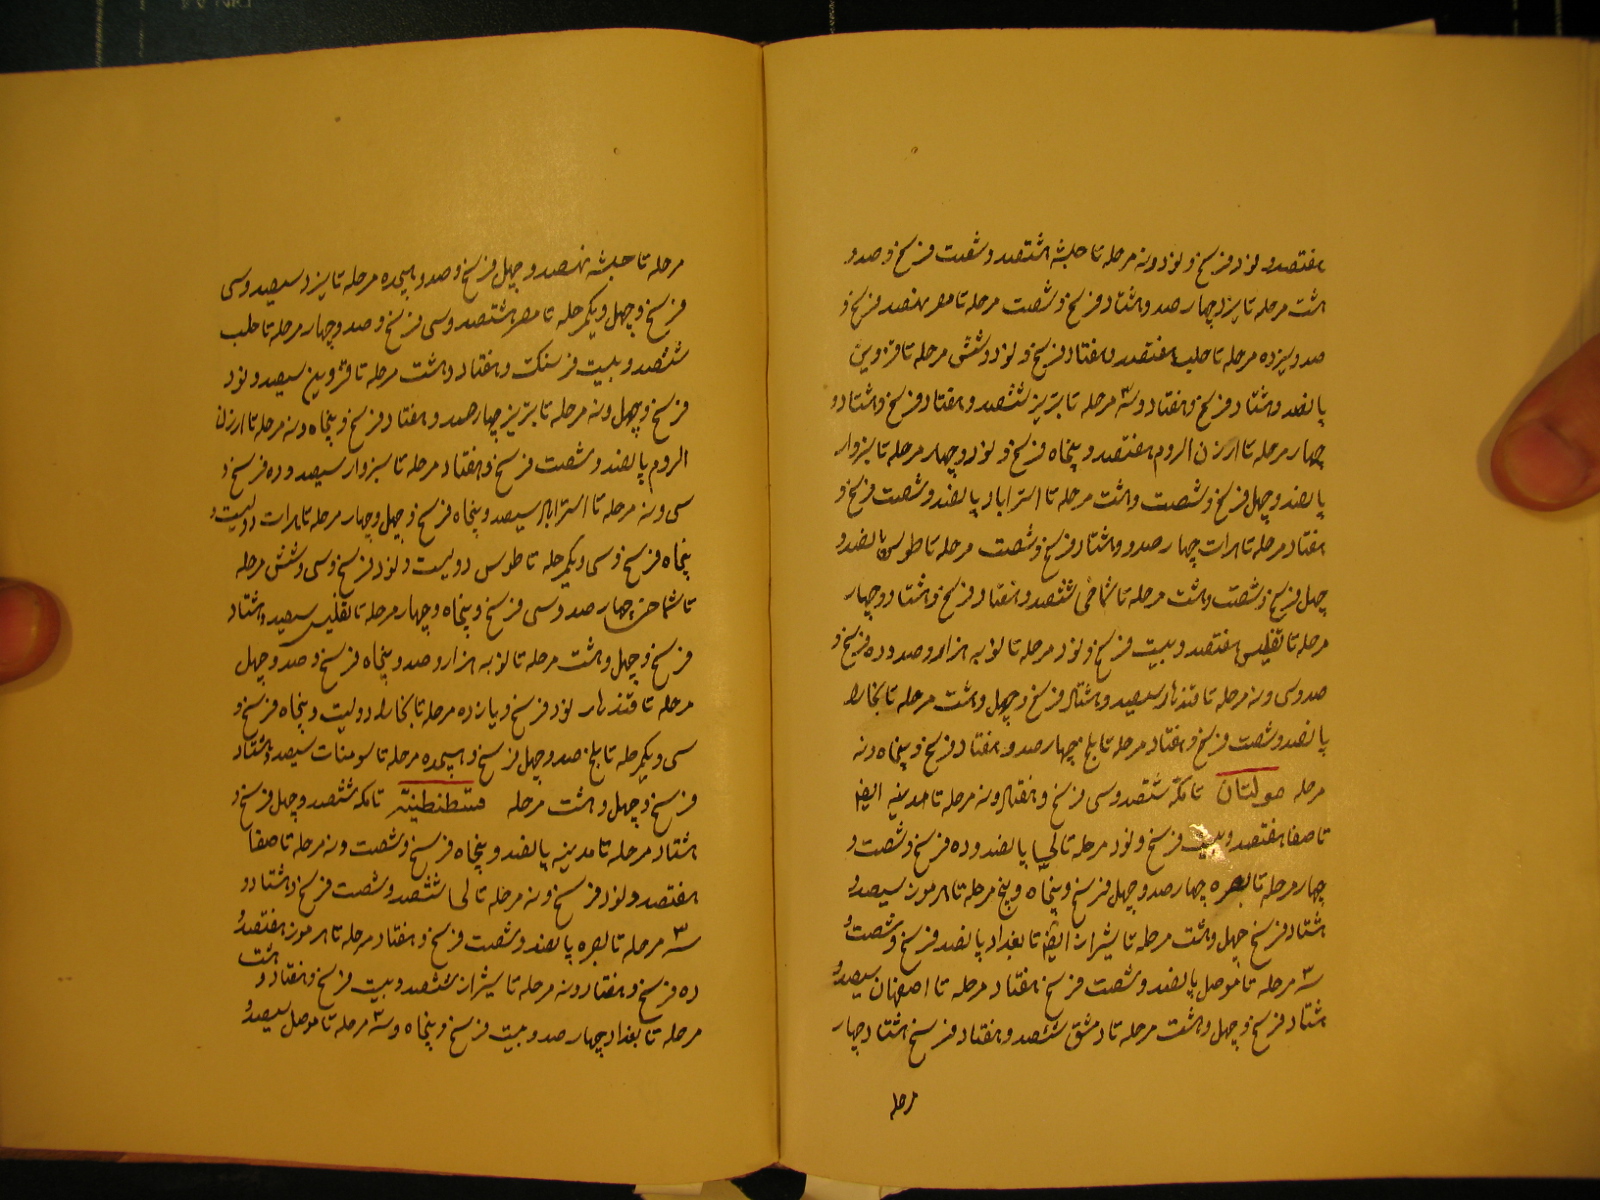 هفتصد و نود فرسخ و نود و نه مرحله تا حبشه هشتصد و شصت فرسخ و صد و
هشت مرحله تا یزد چهار صد و هشتاد فرسخ و شصت مرحله تا مصر نهصد فرسخ و
صد و سیزده مرحله تا حلب هفتصد و هفتاد فرسخ و نود و شش مرحله تا قزوین
پانصد و هشتاد فرسخ و هفتاد و سه مرحله تا تبریز ششصد و هفتاد فرسخ و هشتاد و
چهار مرحله تا ارزن الروم هفتصد و پنجاه فرسخ و نود و چهار مرحله تا سبزوار
پانصد و چهل فرسخ و شصت و هشت مرحله تا استراباد پانصد و شصت فرسخ و
هفتاد مرحله تا هرات چهار صد و هشتاد فرسخ و شصت مرحله تا طوس پانصد و
چهل فرسخ و شصت و هشت مرحله تا شماخی ششصد و هفتاد فرسخ و هشتاد و چهار
مرحله تا تفلیس هفتصد و بیست فرسخ و نود مرحله تا نوبه هزار و صد و ده فرسخ و
صد و سی و نه مرحله تا قندهار سیصد و هشتاد فرسخ و چهل و هشت مرحله تا بخارا
پانصد و شصت فرسخ و هفتاد مرحله تا بلخ چهار صد و هفتاد فرسخ و پنجاه و نه
مرحله مولتان تا مکه ششصد و سی فرسخ و هفتاد و نه مرحله تا مدینه ایضا
تا صفا هفتصد و بیست فرسخ و نود مرحله تا پانصد و ده فرسخ و شصت و
چهار مرحله تا بصره چهار صد و چهل فرسخ و پنجاه و پنج مرحله تا هرموز سیصد و
هشتاد فرسخ چهل و هشت مرحله تا شیراز ایضا تا بغداد پانصد فرسخ و شصت و
سه مرحله تا موصل پانصد و شصت فرسخ هفتاد مرحله تا اصفهان سیصد و
هشتاد فرسخ و چهل و هشت مرحله تا دمشق ششصد و هفتاد فرسخ هشتاد چهار
مرحله
مرحله تا حبشه نهصد و چهل فرسخ و صد و هیجده مرحله تا یزد سیصد و سی
فرسخ و چهل و یکمرحله تا مصر هشتصد و سی فرسخ و صد و چهار مرحله تا حلب
ششصد و بیست فرسنک و هفتاد و هشت مرحله تا قزوین سیصد و نود
فرسخ و چهل و نه مرحله تا تبریز چهار صد و هفتاد فرسخ و پنجاه و نه مرحله تا ارزن
الروم پانصد و شصت فرسخ و هفتاد مرحله تا سبزوار سیصد و ده فرسخ و
سی و نه مرحله تا استراباد سیصد و پنجاه فرسخ و چهل و چهار مرحله تا هرات دویست و
پنجاه فرسخ و سی و یکمرحله تا طوس دویست و نود فرسخ و سی و شش مرحله
تا چهار صد و سی فرسخ و پنجاه و چهار مرحله تا تفلیس سیصد و هشتاد
فرسخ و چهل و هشت مرحله تا نوبه هزار و صد و پنجاه فرسخ و صد و چهل
مرحله تا قندهار نود فرسخ و یازده مرحله تا بخارا دویست و پنجاه فرسخ و
سی و یکمرحله تا بلخ صد و چهل فرسخ و هیجده مرحله تا سومنات سیصد و هشتاد
فرسخ و چهل و هشت مرحله قسطنطنیه تا مکه ششصد و چهل فرسخ و
هشتاد مرحله تا مدینه پانصد و پنجاه فرسخ و شصت و نه مرحله تا صفا
هفتصد و نود فرسخ و نه مرحله تا ششصد و شصت فرسخ و هشتاد و
سه مرحله تا بصره پانصد و شصت فرسخ و هفتاد مرحله تا هرموز هفتصد و
ده فرسخ و هفتاد و نه مرحله تا شیراز ششصد و بیست فرسخ و هفتاد و هشت
مرحله تا بغداد چهار صد و بیست فرسخ و پنجاه و سه مرحله تا موصل سیصد و